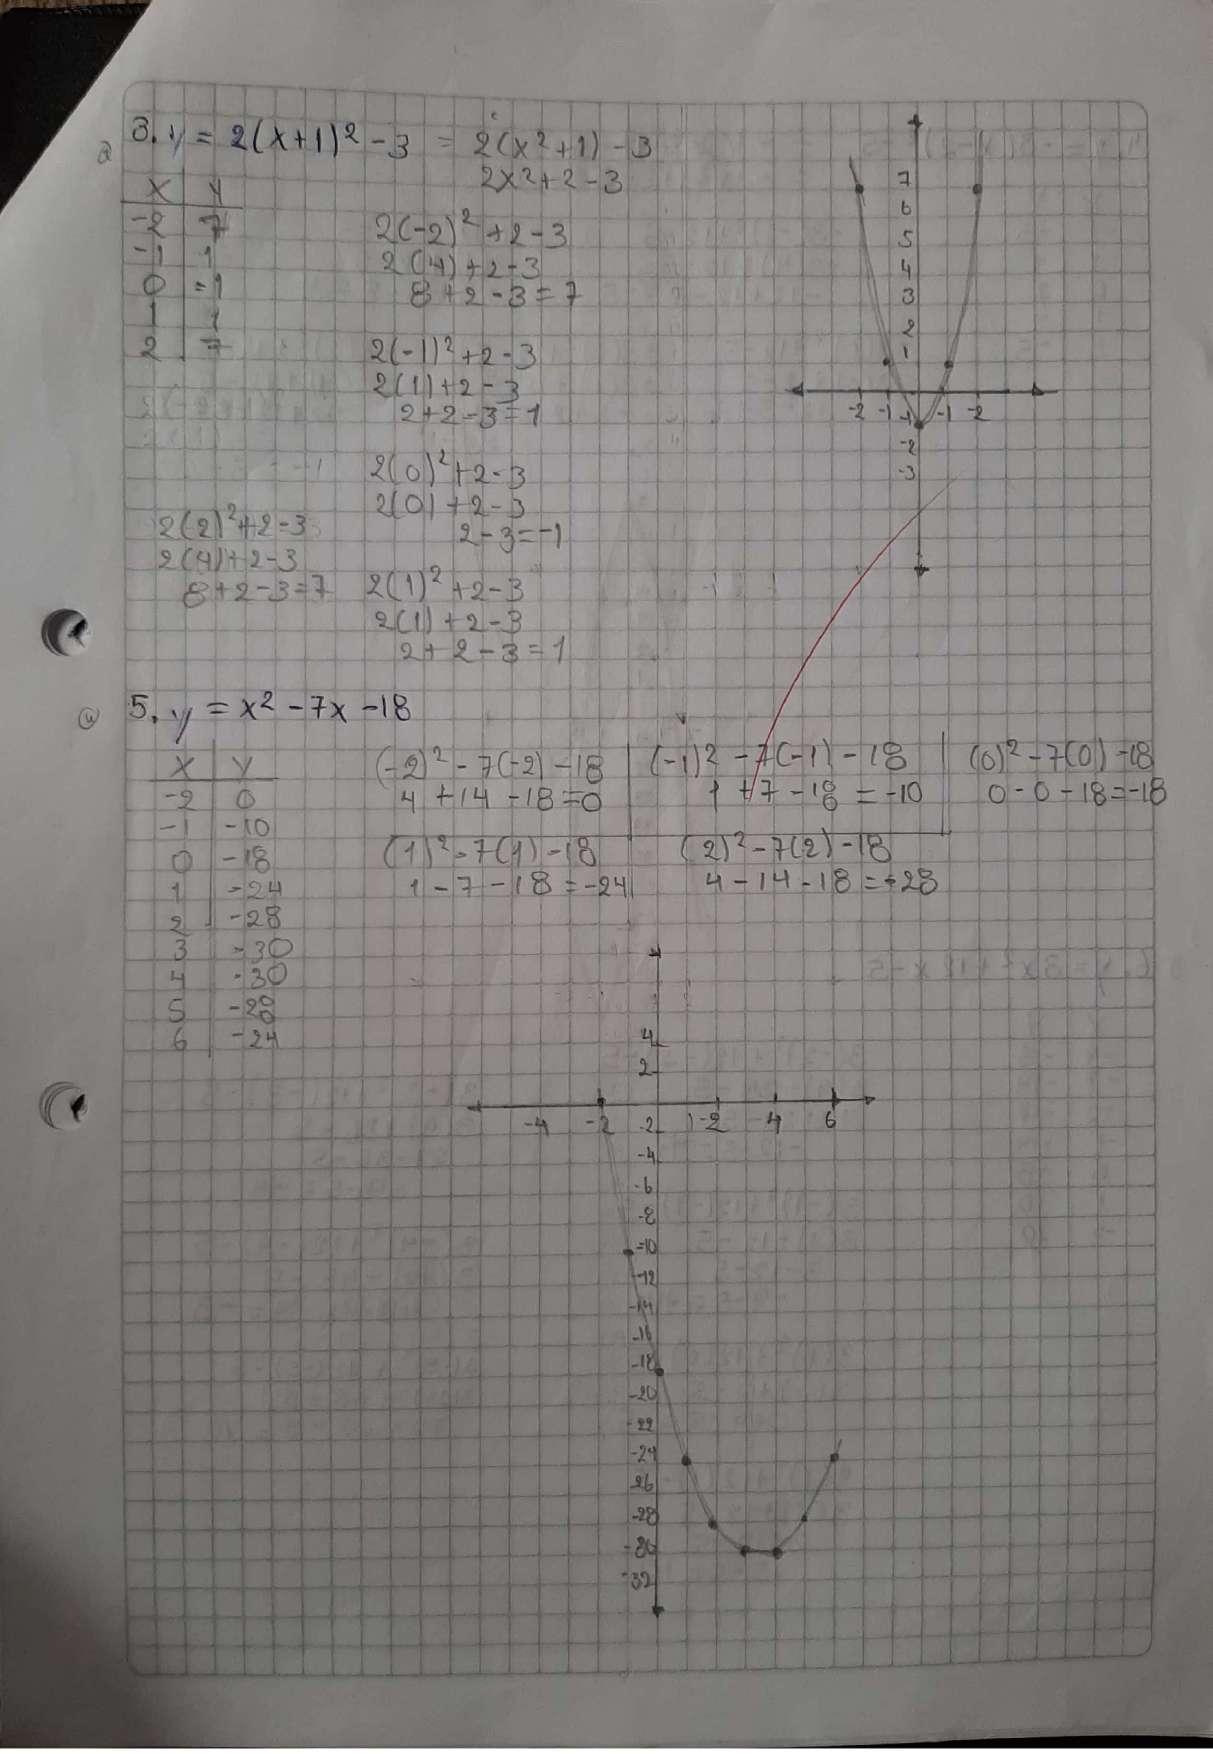 3. y = 2(x+1)² - 3 = 2(x²+1) - 3
2x²+2-3
x y
-2 7
-1 1
0 -1
1 1
2 7
2(-2)²+2-3
2(4)+2-3
8+2-3=7
2(-1)²+2-3
2(1)+2-3
2+2-3=1
2(0)²+2-3
2(0)+2-3
2-3=-1
2(2)²+2-3
2(4)+2-3
8+2-3=7
2(1)²+2-3
2(1)+2-3
2+2-3=1
7
6
5
4
3
2
1
-2 -1 -1 -1 -2
-2
-3
5. y = x² - 7x - 18
x y
-2 0
-1 -10
0 -18
1 -24
2 -28
3 -30
4 -30
5 -28
6 -24
(-2)² - 7(-2) - 18
4 + 14 - 18 = 0
(-1)² - 7(-1) - 18
1 + 7 - 18 = -10
(0)² - 7(0) - 18
0 - 0 - 18 = -18
(1)² - 7(1) - 18
1 - 7 - 18 = -24
(2)² - 7(2) - 18
4 - 14 - 18 = -28
4
2
-4 -2 -2 1 -2 4 6
-4
-6
-8
-10
-12
-14
-16
-18
-20
-22
-24
-26
-28
-30
-32